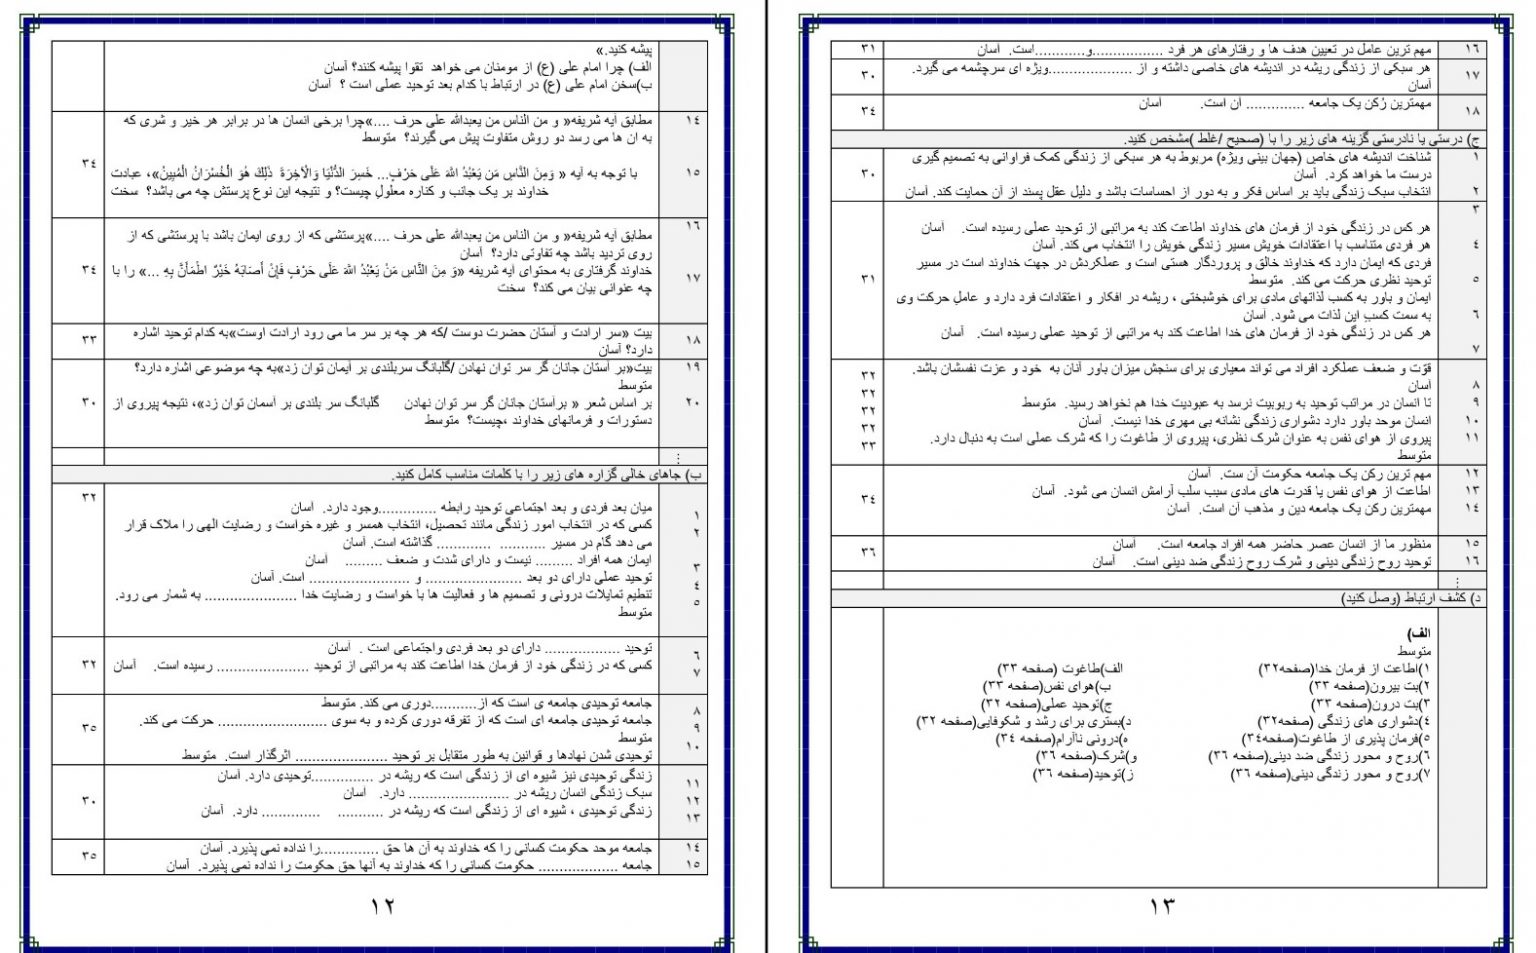 پیشه کنید.»
الف) چرا امام علی (ع) از مومنان می خواهد تقوا پیشه کنند؟ آسان
ب)سخن امام علی (ع) در ارتباط با کدام بعد توحید عملی است ؟ آسان
۱۴ مطابق آیه شریفه« و من الناس من یعبدالله علی حرف ....»چرا برخی انسان ها در برابر هر خیر و شری که
به ان ها می رسد دو روش متفاوت پیش می گیرند؟ متوسط
۱۵ با توجه به آیه « وَمِنَ النَّاسِ مَن يَعْبُدُ اللهَ عَلَى حَرْفٍ... خَسِرَ الدُّنْيَا وَالْآخِرَةَ ذَلِكَ هُوَ الْخُسْرَانُ الْمُبِينُ»، عبادت ۳۴
خداوند بر یک جانب و کناره معلولِ چیست؟ و نتیجه این نوع پرستش چه می باشد؟ سخت
۱۶ مطابق آیه شریفه« و من الناس من یعبدالله علی حرف ....»پرستشی که از روی ایمان باشد با پرستشی که از
روی تردید باشد چه تفاوتی دارد؟ آسان
۱۷ خداوند گرفتاری به محتوای آیه شریفه «وَ مِنَ النَّاسِ مَنْ يَعْبُدُ اللهَ عَلَى حَرْفٍ فَإِنْ أَصَابَهُ خَيْرٌ اطْمَأَنَّ بِهِ ...» را با ۳۴
چه عنوانی بیان می کند؟ سخت
۱۸ بیت «سر ارادت و آستان حضرت دوست /که هر چه بر سر ما می رود ارادت اوست»به کدام توحید اشاره ۳۳
دارد؟ آسان
۱۹ بیت«بر آستان جانان گر سر توان نهادن /گلبانگ سربلندی بر آیمان توان زد»به چه موضوعی اشاره دارد؟
متوسط
۲۰ بر اساس شعر « برآستان جانان گر سر توان نهادن گلبانگ سر بلندی بر آسمان توان زد»، نتیجه پیروی از ۳۰
دستورات و فرمانهای خداوند ،چیست؟ متوسط
⋮
ب) جاهای خالی گزاره های زیر را با کلمات مناسب کامل کنید.
۱ میان بعد فردی و بعد اجتماعی توحید رابطه ..............وجود دارد. آسان ۳۲
۲ کسی که در انتخاب امور زندگی مانند تحصیل، انتخاب همسر و غیره خواست و رضایت الهی را ملاک قرار
می دهد گام در مسیر ........... ............. گذاشته است. آسان
۳ ایمان همه افراد ......... نیست و دارای شدت و ضعف ......... آسان
۴ توحید عملی دارای دو بعد ....................... و ........................ است. آسان
۵ تنظیم تمایلات درونی و تصمیم ها و فعالیت ها با خواست و رضایت خدا ...................... به شمار می رود.
متوسط
۶ توحید .................. دارای دو بعد فردی واجتماعی است . آسان
۷ کسی که در زندگی خود از فرمان خدا اطاعت کند به مراتبی از توحید ...................... رسیده است. آسان ۳۲
۸ جامعه توحیدی جامعه ی است که از...........دوری می کند. متوسط
۹ جامعه توحیدی جامعه ای است که از تفرقه دوری کرده و به سوی .......................... حرکت می کند. ۳۵
متوسط
۱۰ توحیدی شدن نهادها و قوانین به طور متقابل بر توحید ...................... اثرگذار است. متوسط
۱۱ زندگی توحیدی نیز شیوه ای از زندگی است که ریشه در ..............توحیدی دارد. آسان
۱۲ سبک زندگی انسان ریشه در ........................ دارد. آسان ۳۰
۱۳ زندگی توحیدی ، شیوه ای از زندگی است که ریشه در ........... .............. دارد. آسان
۱۴ جامعه موحد حکومت کسانی را که خداوند به آن ها حق ..............را نداده نمی پذیرد. آسان ۳۵
۱۵ جامعه ................... حکومت کسانی را که خداوند به آنها حق حکومت را نداده نمی پذیرد. آسان
۱۲
۱۶ مهم ترین عامل در تعیین هدف ها و رفتارهای هر فرد .................و............است. آسان ۳۱
۱۷ هر سبکی از زندگی ریشه در اندیشه های خاصی داشته و از ....................ویژه ای سرچشمه می گیرد. ۳۰
آسان
۱۸ مهمترین رُکن یک جامعه .............. آن است. آسان ۳۴
ج) درستی یا نادرستی گزینه های زیر را با (صحیح /غلط )مشخص کنید.
۱ شناخت اندیشه های خاص (جهان بینی ویژه) مربوط به هر سبکی از زندگی کمک فراوانی به تصمیم گیری
درست ما خواهد کرد. آسان ۳۰
۲ انتخاب سبک زندگی باید بر اساس فکر و به دور از احساسات باشد و دلیل عقل پسند از آن حمایت کند. آسان
۳ هر کس در زندگی خود از فرمان های خداوند اطاعت کند به مراتبی از توحید عملی رسیده است. آسان
۴ هر فردی متناسب با اعتقادات خویش مسیر زندگی خویش را انتخاب می کند. آسان
۵ فردی که ایمان دارد که خداوند خالق و پروردگار هستی است و عملکردش در جهت خداوند است در مسیر ۳۱
توحید نظری حرکت می کند. متوسط
۶ ایمان و باور به کسب لذاتهای مادی برای خوشبختی ، ریشه در افکار و اعتقادات فرد دارد و عامل حرکت وی
به سمت کسب این لذات می شود. آسان
۷ هر کس در زندگی خود از فرمان های خدا اطاعت کند به مراتبی از توحید عملی رسیده است. آسان
۸ قوّت و ضعف عملکرد افراد می تواند معیاری برای سنجش میزان باور آنان به خود و عزت نفسشان باشد. ۳۲
آسان
۹ تا انسان در مراتب توحید به ربوبیت نرسد به عبودیت خدا هم نخواهد رسید. متوسط ۳۲
۱۰ انسان موحد باور دارد دشواری زندگی نشانه بی مهری خدا نیست. آسان ۳۲
۳۲
۱۱ پیروی از هوای نفس به عنوان شرک نظری، پیروی از طاغوت را که شرک عملی است به دنبال دارد. ۳۳
متوسط
۱۲ مهم ترین رکن یک جامعه حکومت آن ست. آسان
۱۳ اطاعت از هوای نفس یا قدرت های مادی سبب سلب آرامش انسان می شود. آسان ۳۴
۱۴ مهمترین رکن یک جامعه دین و مذهب آن است. آسان
۱۵ منظور ما از انسان عصر حاضر همه افراد جامعه است. آسان ۳۶
۱۶ توحید روح زندگی دینی و شرک روح زندگی ضد دینی است. آسان
⋮
د) کشف ارتباط (وصل کنید)
الف)
متوسط
۱)اطاعت از فرمان خدا(صفحه۳۲) الف)طاغوت (صفحه ۳۳)
۲)بت بیرون(صفحه ۳۳) ب)هوای نفس(صفحه ۳۳)
۳)بت درون(صفحه ۳۳) ج)توحید عملی(صفحه ۳۲)
۴)دشواری های زندگی (صفحه۳۲) د)بستری برای رشد و شکوفایی(صفحه ۳۲)
۵)فرمان پذیری از طاغوت(صفحه۳۴) ه)درونی ناآرام(صفحه ۳۴)
۶)روح و محور زندگی ضد دینی(صفحه ۳۶) و)شرک(صفحه ۳۶)
۷)روح و محور زندگی دینی(صفحه ۳۶) ز)توحید(صفحه ۳۶)
۱۳